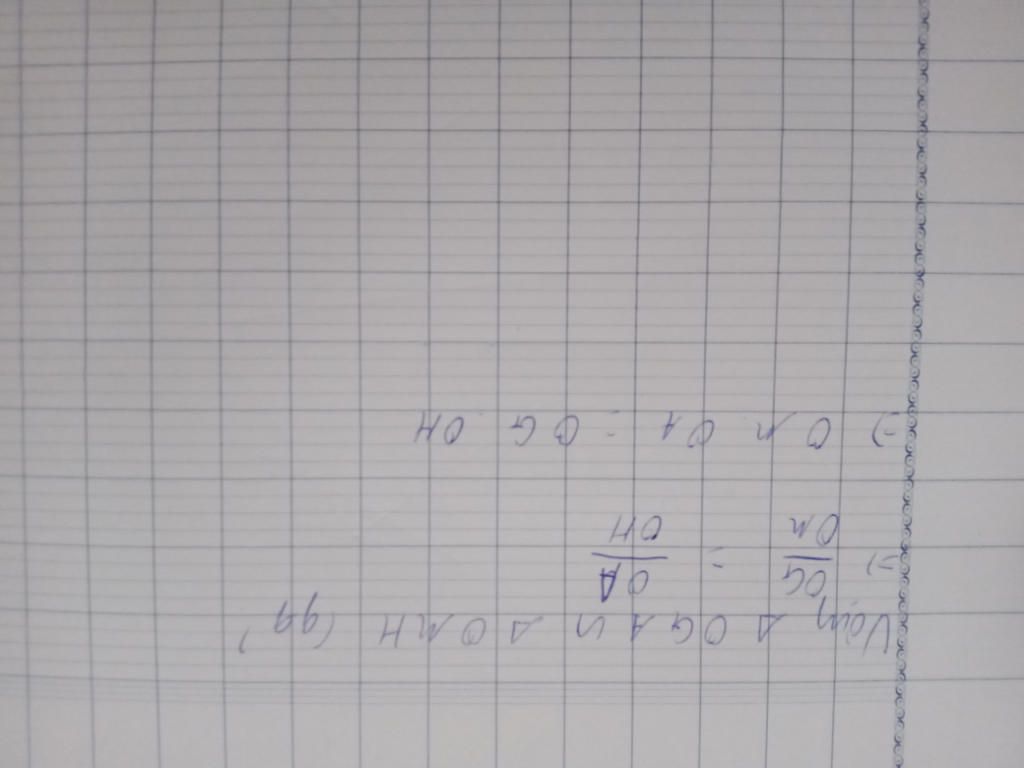 Vậy Δ OGA ∽ Δ OMH (gg)
=) OG/OM = OA/OH
=) OM . OA = OG . OH